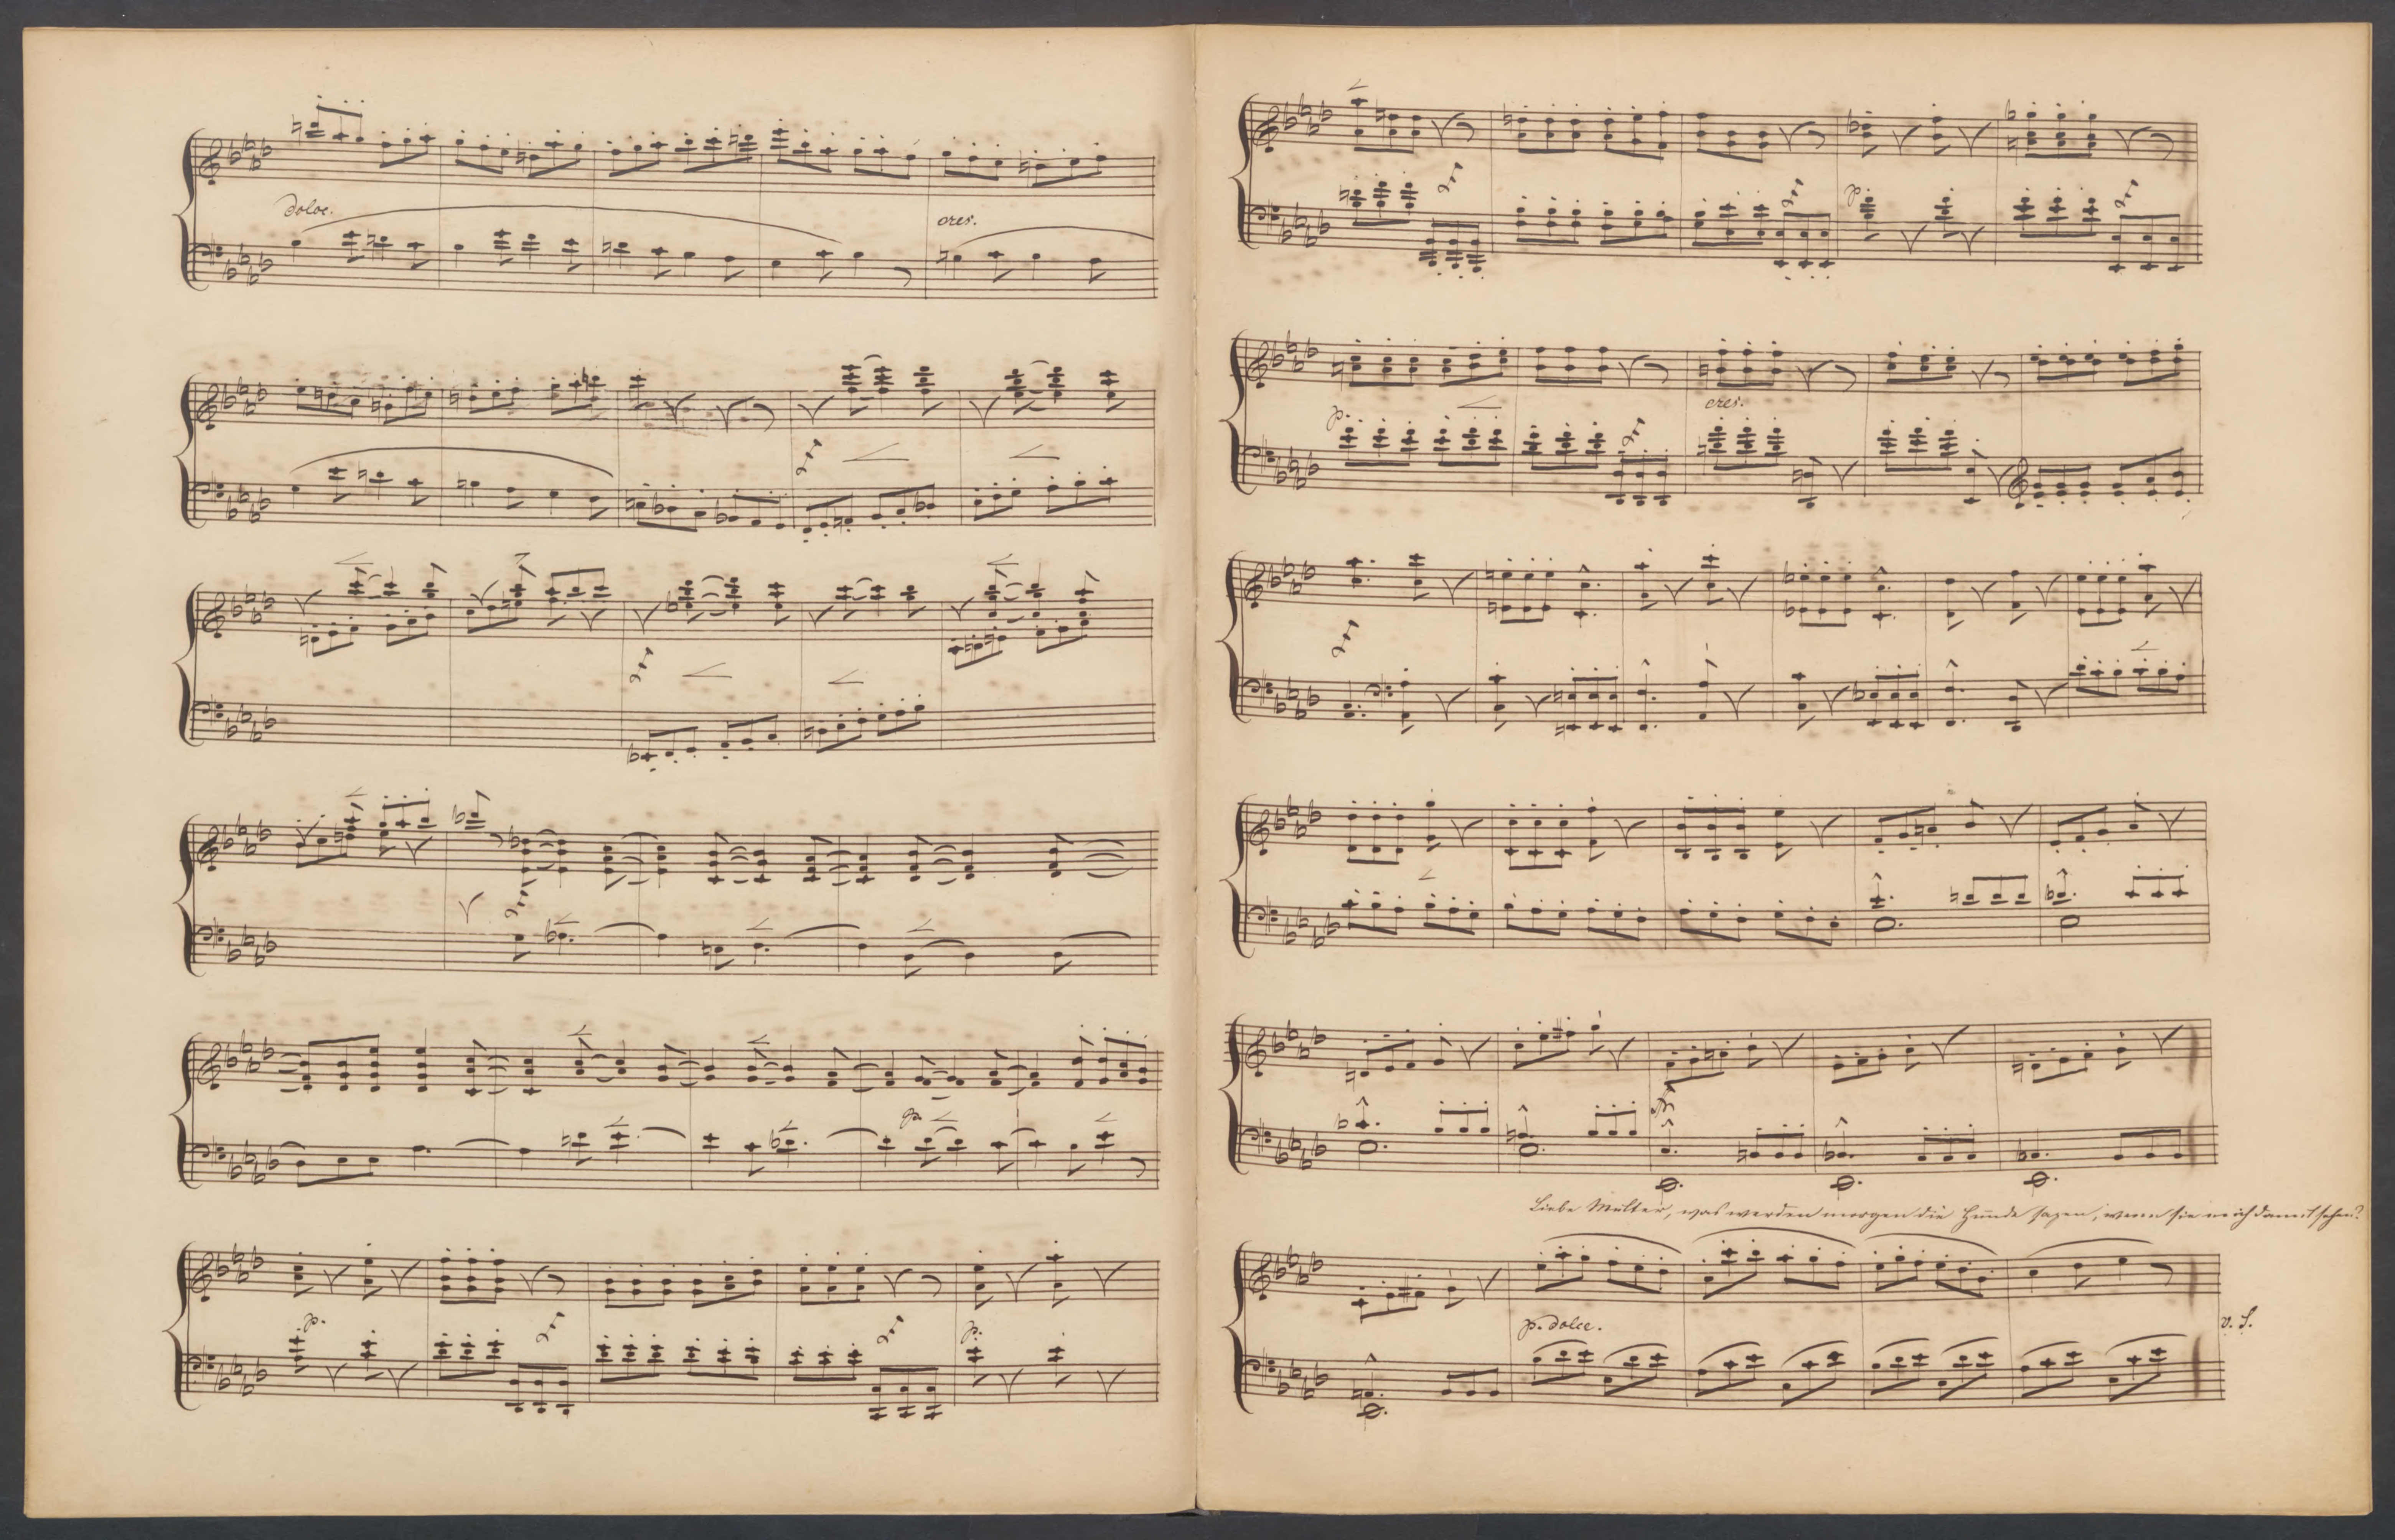 dolce.
cres.
p
p.
p.
p
p.
cres.
Liebe Mutter, was werden morgen die Hunde sagen, wenn sie mich damit sehen?
p. dolce.
v. S.